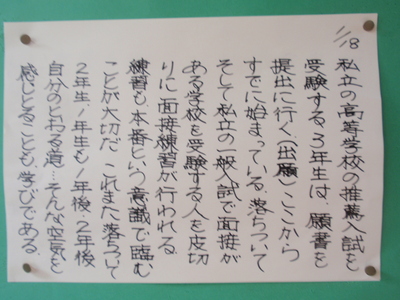 1/18
私立の高等学校の推薦入試を
受験する、3年生は、願書を
提出に行く、(出願)、ここから
すでに始まっている。落ちついて
そして私立の一般入試で面接が
ある学校を受験する人を皮切
りに面接練習が行われる。
練習も、本番という意識で臨む
ことが大切だ。これまた落ちついて
2年生、1年生も1年後、2年後
自分のとおる道…そんな空気を
感じとることも、学びである。